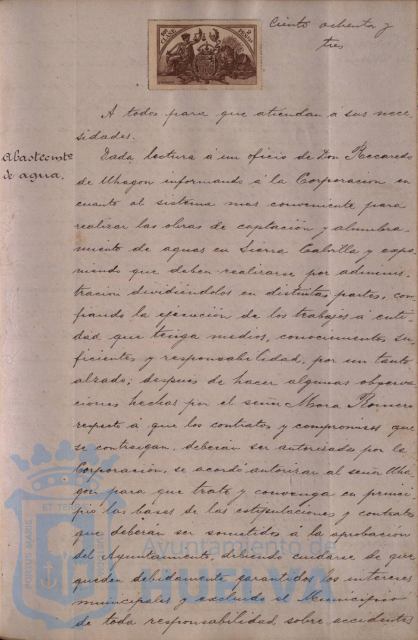 Ciento ochenta y
tres
A todos para que atiendan á sus nece-
sidades.
Abastecimto
de agua.
Dada lectura á un oficio de Don Recaredo
de Uhagon informando á la Corporacion en
cuanto al sistema mas conveniente para
realizar las obras de captacion y alumbra-
miento de aguas en Sierra Cabello y expo-
niendo que deben realizarse por adminis-
tracion dividiéndolos en distintas partes, con-
fiando la ejecucion de los trabajos á enti-
dad que tenga medios, conocimientos su-
ficientes y responsabilidad, por un tanto
alzado; después de hacer algunas observa-
ciones hechas por el señor Mora Romero
respecto á que los contratos y compromisos que
se contraigan, deberán ser autorizados por la
Corporacion, se acordó autorizar al señor Uha-
gon para que trate y convenga en princi-
pio las bases de las estipulaciones y contratos
que deberán ser sometidos á la aprobacion
del Ayuntamiento, debiendo cuidarse de que
queden debidamente garantidos los intereses
municipales y excluido el Municipio
de toda responsabilidad sobre accidentes
Ayuntamiento de
HUELVA
PORTUS MARIS ET TERRAE CUSTODIA